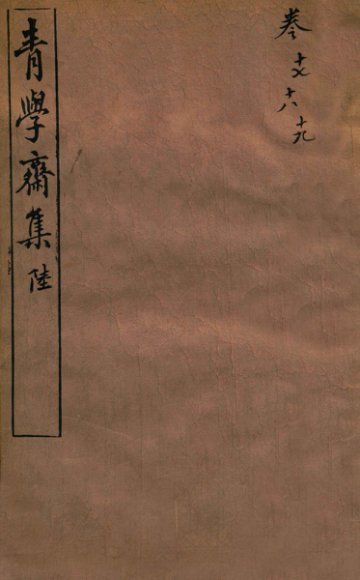 卷十七
十八
十九
青學齋集 陸